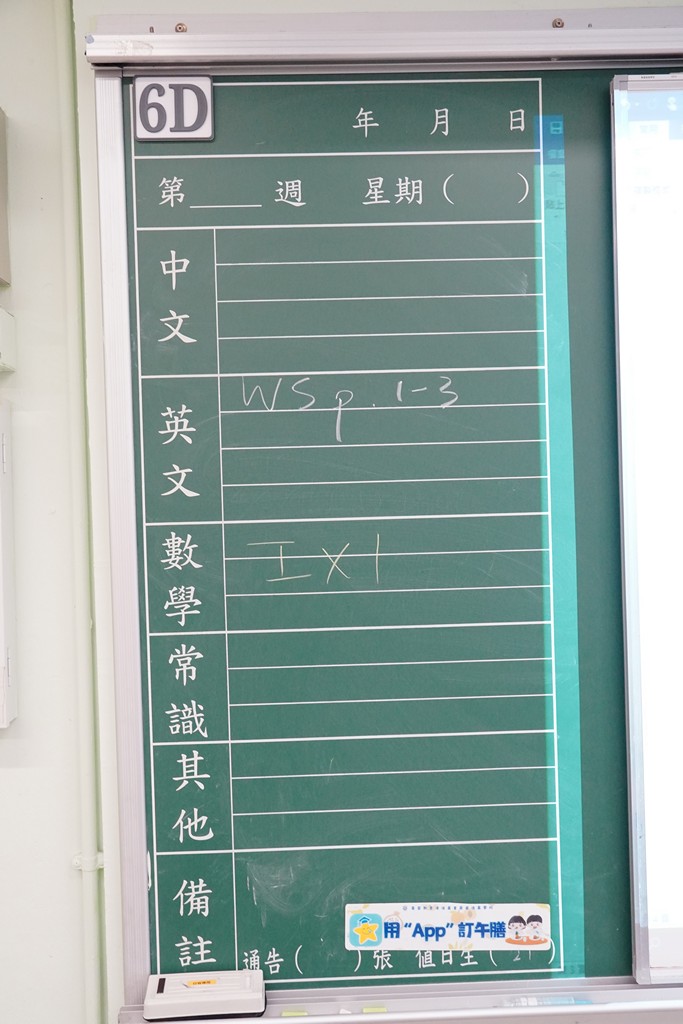 6D
年 月 日
第____週 星期( )
中文
英文
WS p. 1-3
數學
I×1
常識
其他
備註
用 “App” 訂午膳
通告( )張 值日生( 21 )